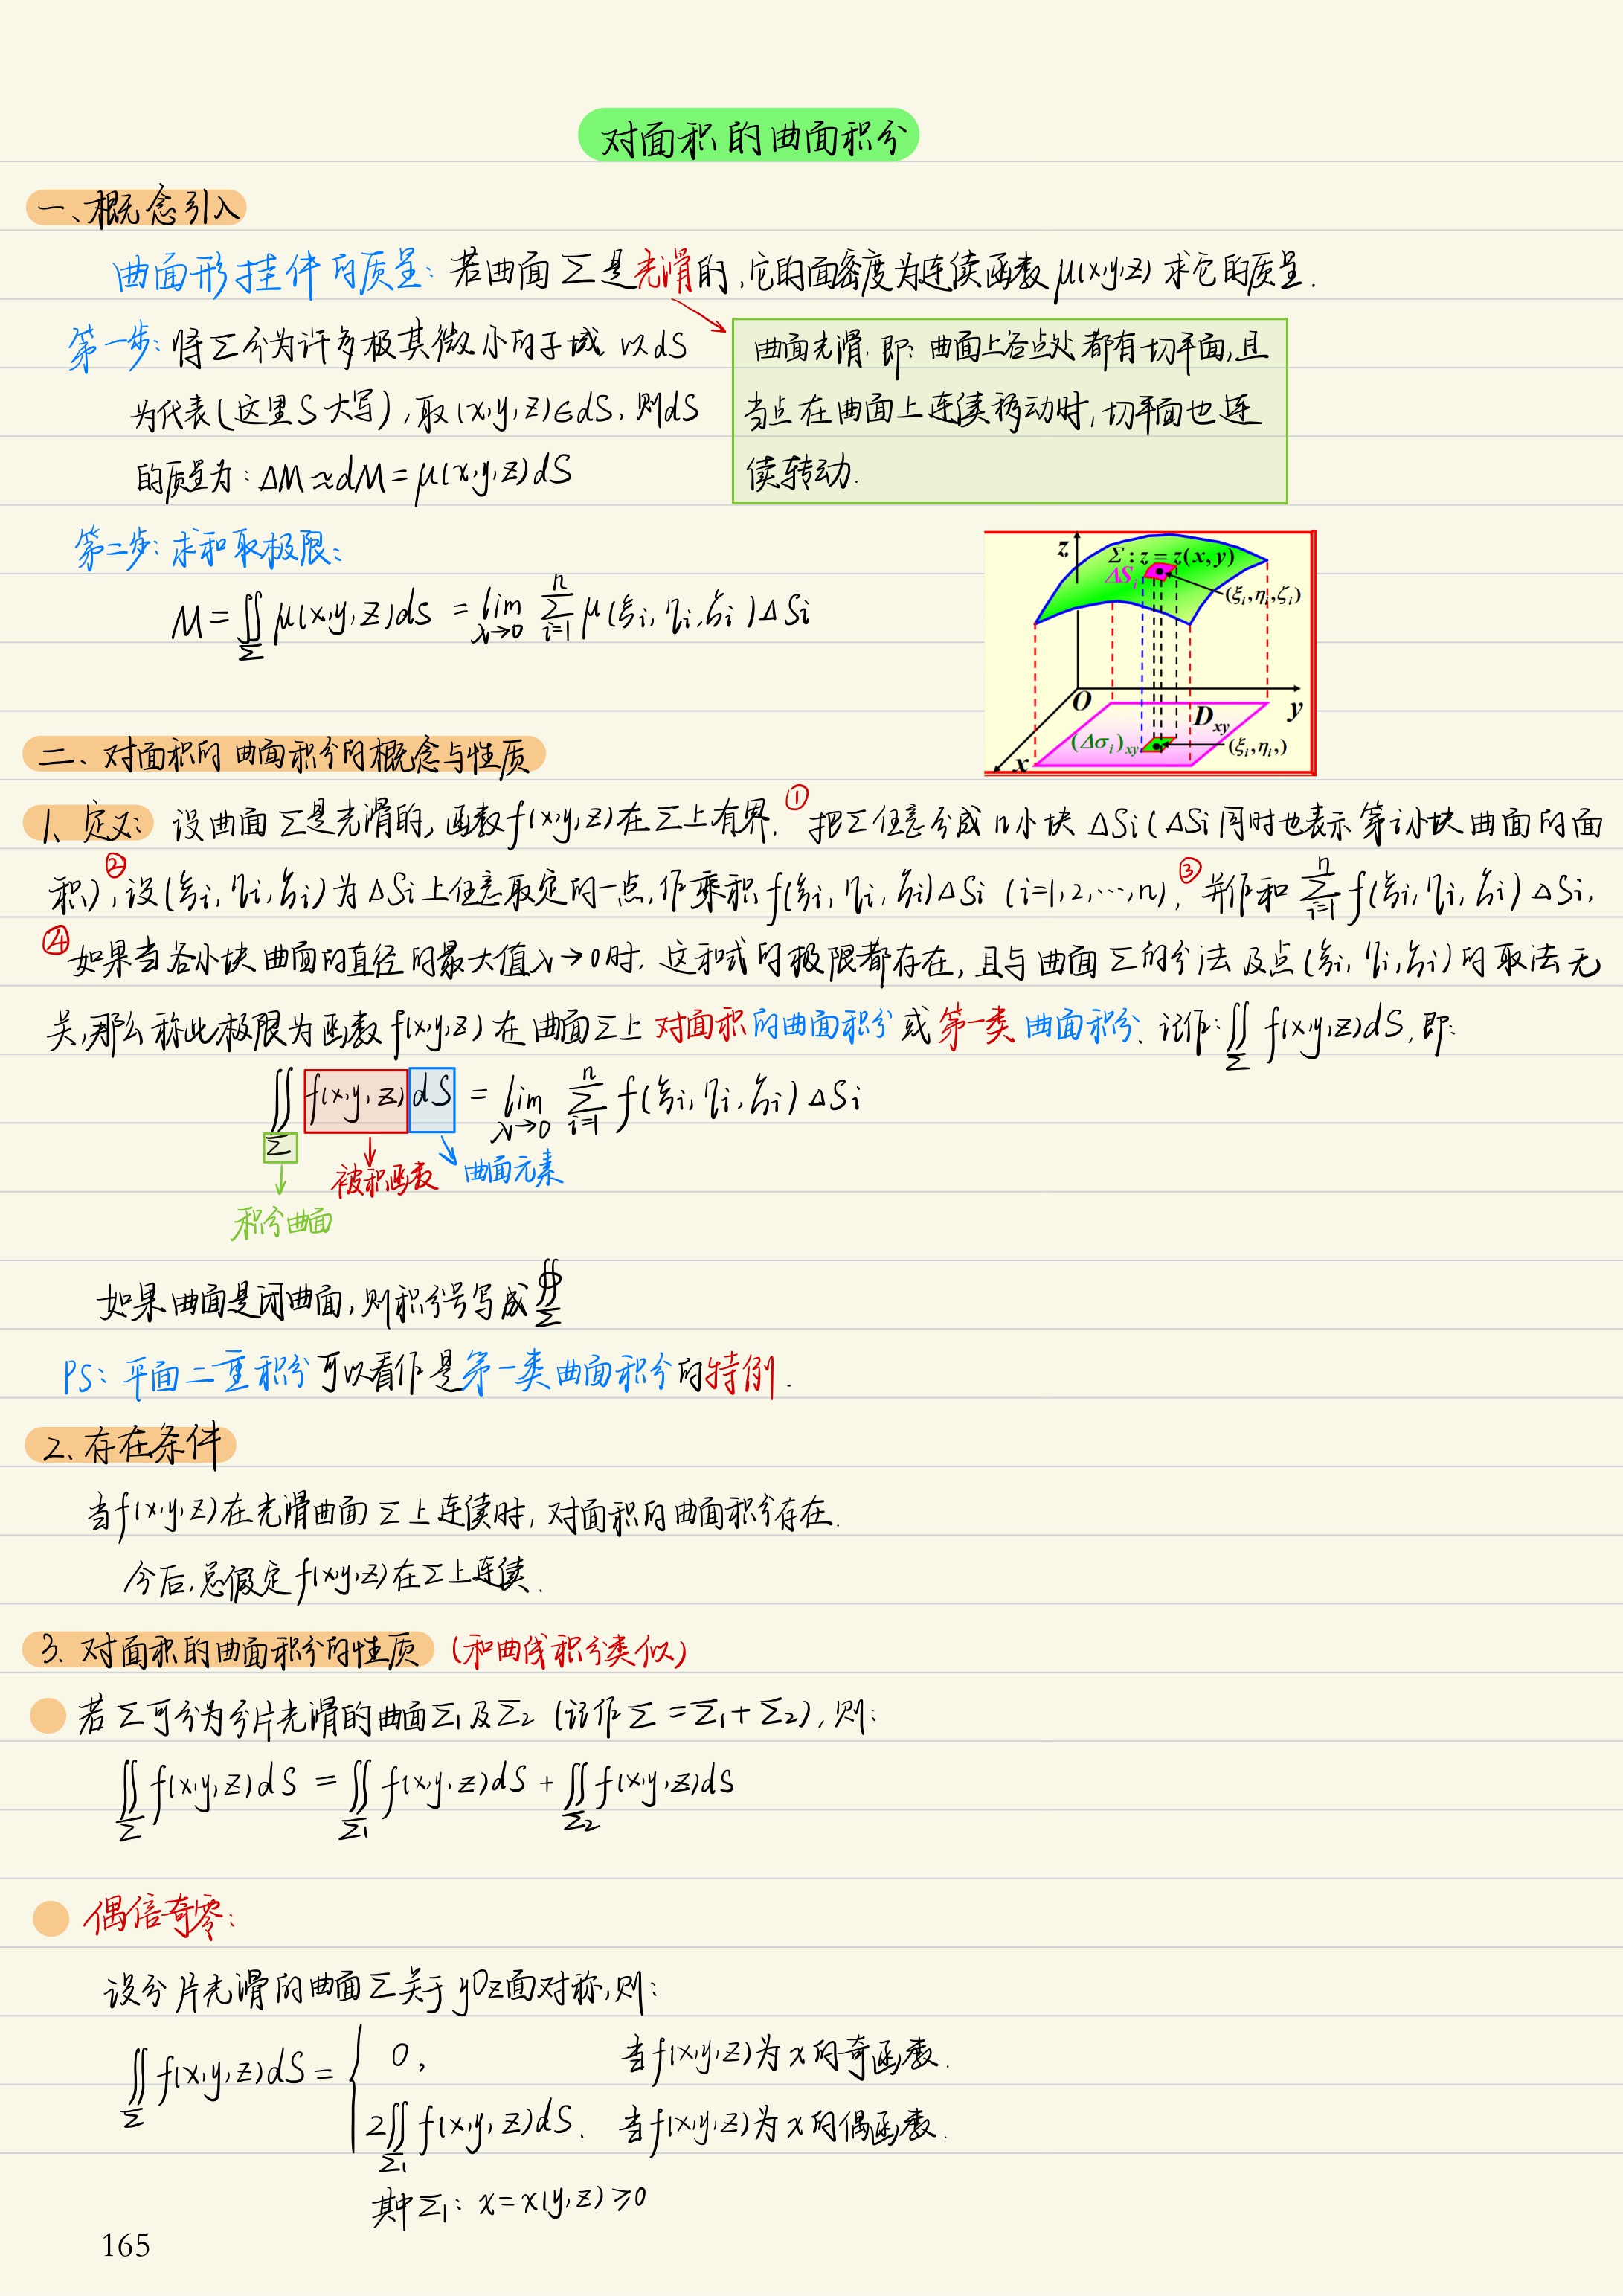 对面积的曲面积分
一、概念引入
曲面形挂件的质量：若曲面 Σ 是光滑的，它的面密度为连续函数 μ(x,y,z) 求它的质量.
第一步：将 Σ 分为许多极其微小的子域 以 dS
为代表(这里 S 大写)，取 (x,y,z)∈dS, 则 dS
的质量为：ΔM≈dM=μ(x,y,z)dS
曲面光滑. 即：曲面上各点处都有切平面,且
当点在曲面上连续移动时,切平面也连
续转动.
第二步：求和取极限：
M=∬_Σ μ(x,y,z)dS = lim_{λ→0} Σ_{i=1}^{n} μ(ξi, ηi, ζi)ΔSi
z
Σ : z = z(x, y)
ΔSi
(ξi,ηi,ζi)
O
y
Dxy
(Δσi)xy
(ξi,ηi,)
x
二、对面积的曲面积分的概念与性质
1、定义： 设曲面 Σ 是光滑的, 函数 f(x,y,z) 在 Σ 上有界. ① 把 Σ 任意分成 n 小块 ΔSi (ΔSi 同时也表示第 i 小块曲面的面
积), ② 设 (ξi, ηi, ζi) 为 ΔSi 上任意取定的一点, 作乘积 f(ξi, ηi, ζi)ΔSi (i=1,2,⋯,n), ③ 并作和 Σ_{i=1}^{n} f(ξi, ηi, ζi)ΔSi,
④ 如果当各小块曲面的直径的最大值 λ→0 时, 这和式的极限都存在, 且与曲面 Σ 的分法及点 (ξi, ηi, ζi) 的取法无
关,那么称此极限为函数 f(x,y,z) 在曲面 Σ 上 对面积的曲面积分 或 第一类曲面积分. 记作: ∬_Σ f(x,y,z)dS, 即:
∬_Σ f(x,y,z)dS = lim_{λ→0} Σ_{i=1}^{n} f(ξi, ηi, ζi)ΔSi
被积函数 曲面元素
积分曲面
如果曲面是闭曲面,则积分号写成 ∯_Σ
PS: 平面二重积分可以看作是第一类曲面积分的特例.
2、存在条件
当 f(x,y,z) 在光滑曲面 Σ 上连续时, 对面积的曲面积分存在.
今后,总假定 f(x,y,z) 在 Σ 上连续.
3. 对面积的曲面积分的性质 (和曲线积分类似)
若 Σ 可分为分片光滑的曲面 Σ1 及 Σ2 (记作 Σ=Σ1+Σ2), 则:
∬_Σ f(x,y,z)dS = ∬_Σ1 f(x,y,z)dS + ∬_Σ2 f(x,y,z)dS
偶倍奇零:
设分片光滑的曲面 Σ 关于 yOz 面对称,则:
∬_Σ f(x,y,z)dS = { 0, 当 f(x,y,z) 为 x 的奇函数.
2∬_Σ1 f(x,y,z)dS. 当 f(x,y,z) 为 x 的偶函数.
其中 Σ1: x=x(y,z)≥0
165